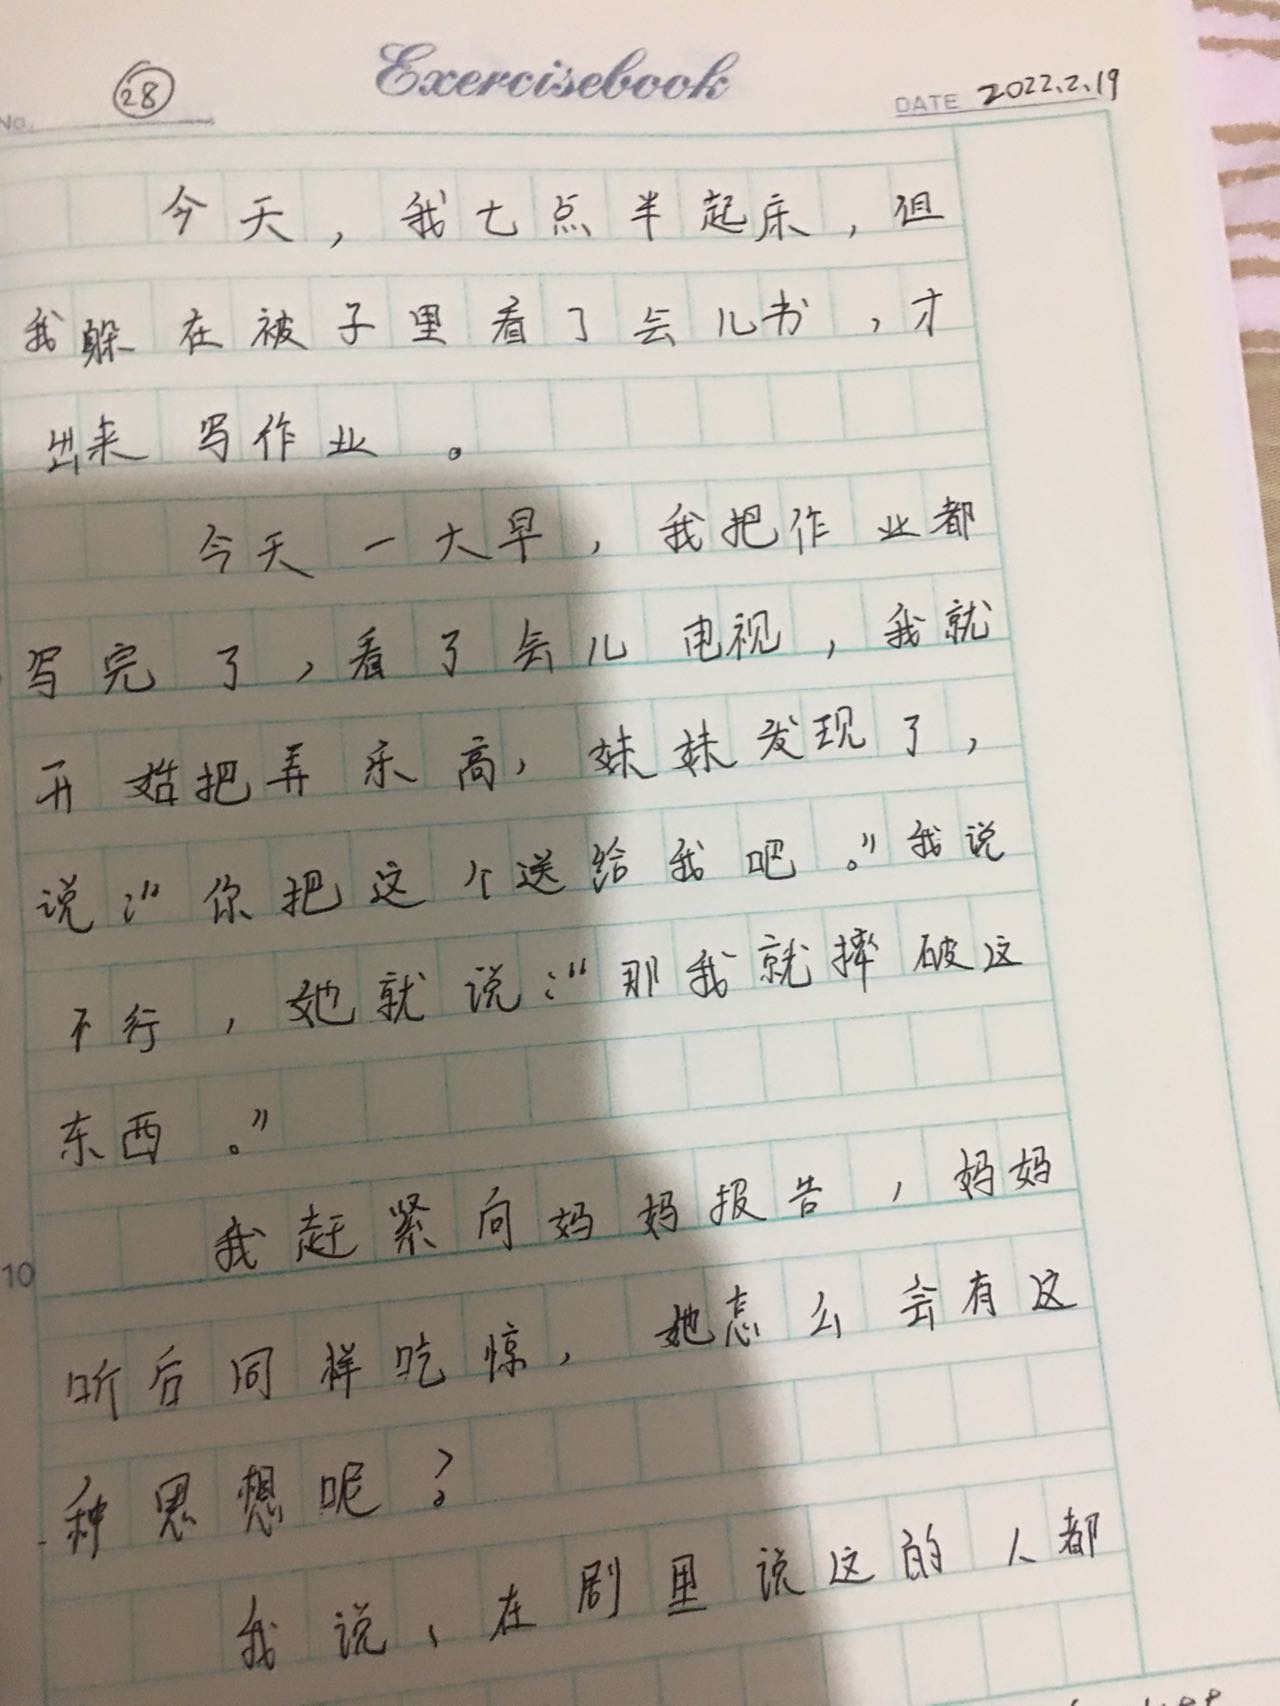 Exercisebook
No. 28
DATE 2022.2.19
今天，我七点半起床，但
我躲在被子里看了会儿书，才
出来写作业。
今天一大早，我把作业都
写完了，看了会儿电视，我就
开始把弄乐高，妹妹发现了，
说：“你把这个送给我吧。”我说
不行，她就说：“那我就摔破这
东西。”
我赶紧向妈妈报告，妈妈
10
听后同样吃惊，她怎么会有这
种思想呢？
我说、在剧里说这的人都